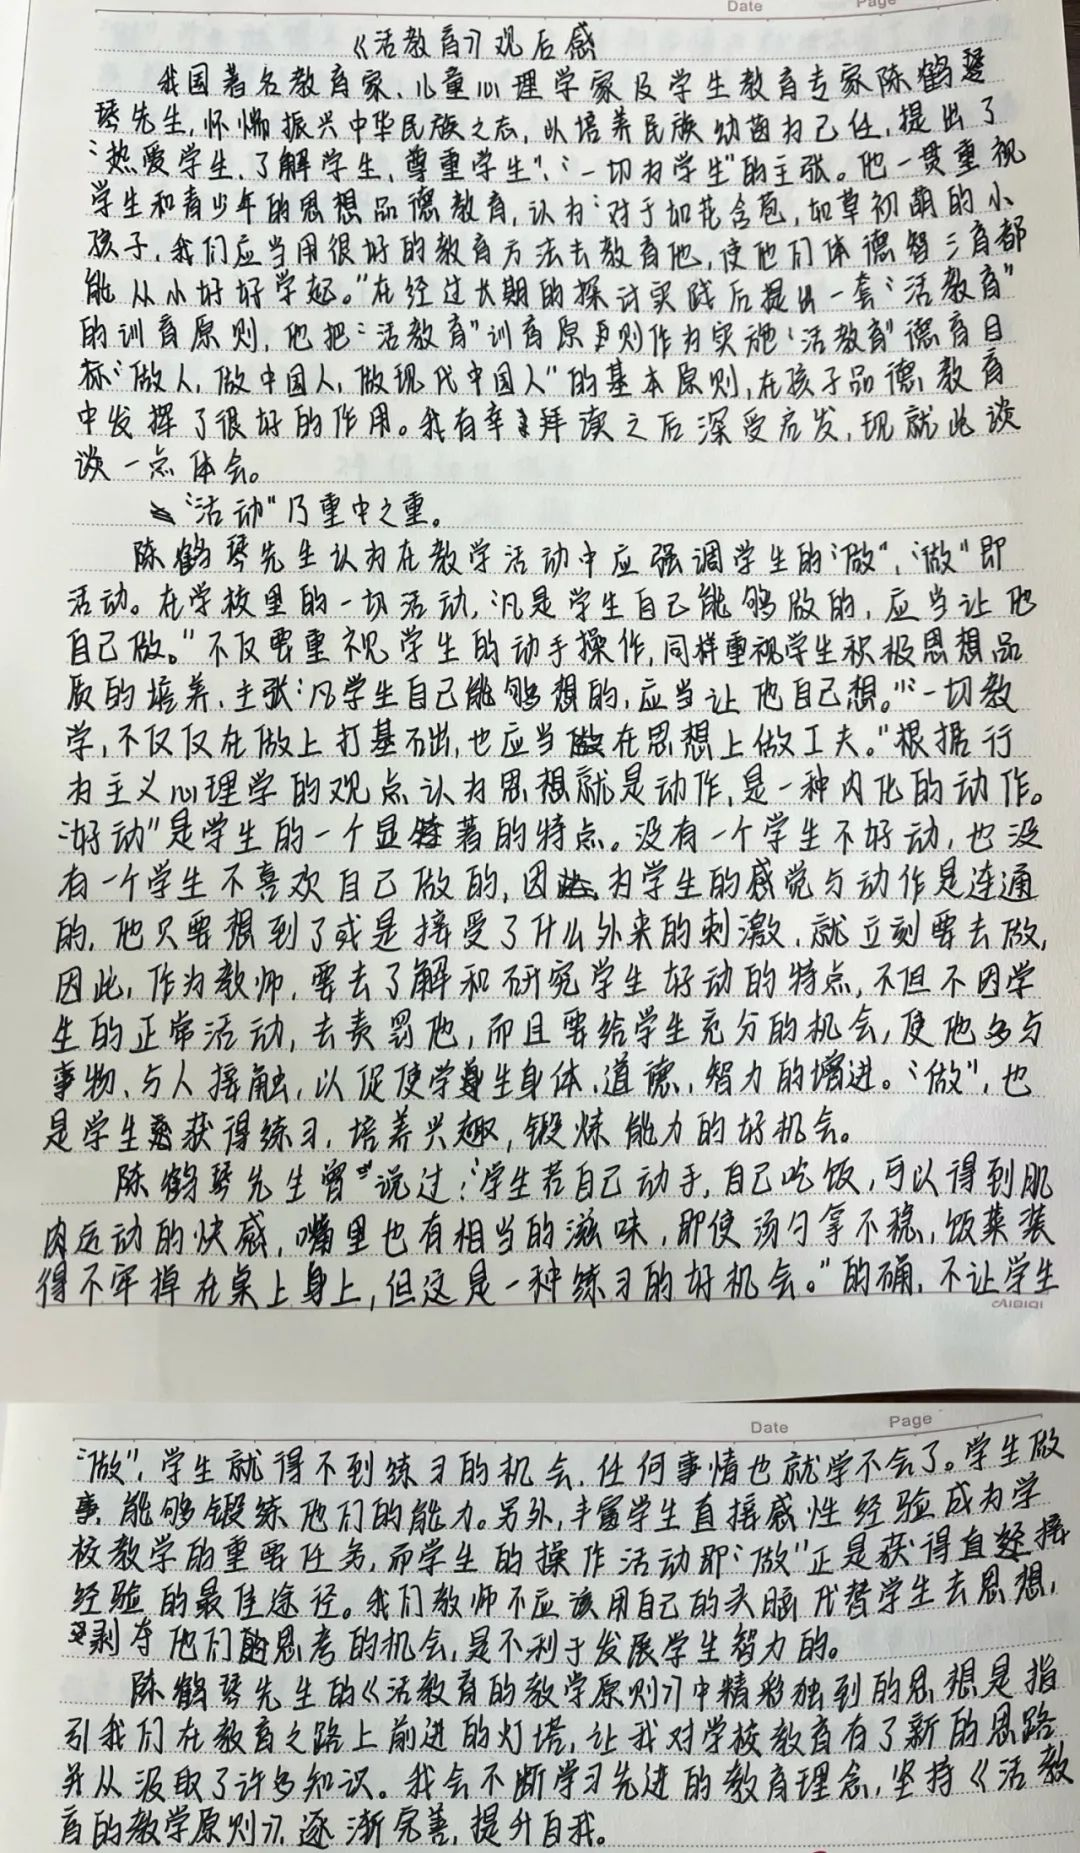 Date Page
《活教育》观后感
我国著名教育家、儿童心理学家及学生教育专家陈鹤琴
琴先生,怀惴振兴中华民族之志,以培养民族幼苗为己任,提出了
“热爱学生、了解学生、尊重学生”、“一切为学生”的主张。他一贯重视
学生和青少年的思想品德教育,认为“对于如花含苞,如草初萌的小
孩子,我们应当用很好的教育方法去教育他,使他们体德智三育都
能从小好好学起。”在经过长期的探讨实践后提出一套“活教育”
的训育原则,他把“活教育”训育原则作为实施“活教育”德育目
标“做人,做中国人,做现代中国人”的基本原则,在孩子品德教育
中发挥了很好的作用。我有幸拜读之后深受启发,现就此谈
谈一点体会。
“活动”乃重中之重。
陈鹤琴先生认为在教学活动中应强调学生的“做”,“做”即
活动。在学校里的一切活动,“凡是学生自己能够做的,应当让他
自己做。”不仅要重视学生的动手操作,同样重视学生积极思想品
质的培养,主张“凡学生自己能够想的,应当让他自己想。”“一切教
学,不仅仅在做上打基础,也应当在思想上做工夫。”根据行
为主义心理学的观点认为思想就是动作,是一种内化的动作。
“好动”是学生的一个显著的特点。没有一个学生不好动,也没
有一个学生不喜欢自己做的,因为学生的感觉与动作是连通
的,他只要想到了或是接受了什么外来的刺激,就立刻要去做,
因此,作为教师,要去了解和研究学生好动的特点,不但不因学
生的正常活动,去责罚他,而且要给学生充分的机会,使他多与
事物、与人接触,以促使学生身体、道德、智力的增进。“做”,也
是学生获得练习,培养兴趣,锻炼能力的好机会。
陈鹤琴先生曾说过:“学生若自己动手,自己吃饭,可以得到肌
肉运动的快感,嘴里也有相当的滋味,即使汤勺拿不稳,饭菜装
得不牢掉在桌上身上,但这是一种练习的好机会。”的确,不让学生
CAIQIQI
Date Page
“做”,学生就得不到练习的机会,任何事情也就学不会了。学生做
事,能够锻练他们的能力。另外,丰富学生直接感性经验成为学
校教学的重要任务,而学生的操作活动即“做”正是获得直接
经验的最佳途径。我们教师不应该用自己的头脑代替学生去思想,
剥夺他们的思考的机会,是不利于发展学生智力的。
陈鹤琴先生的《活教育的教学原则》中精彩独到的思想是指
引我们在教育之路上前进的灯塔,让我对学校教育有了新的思路
并从汲取了许多知识。我会不断学习先进的教育理念,坚持《活教
育的教学原则》,逐渐完善,提升自我。